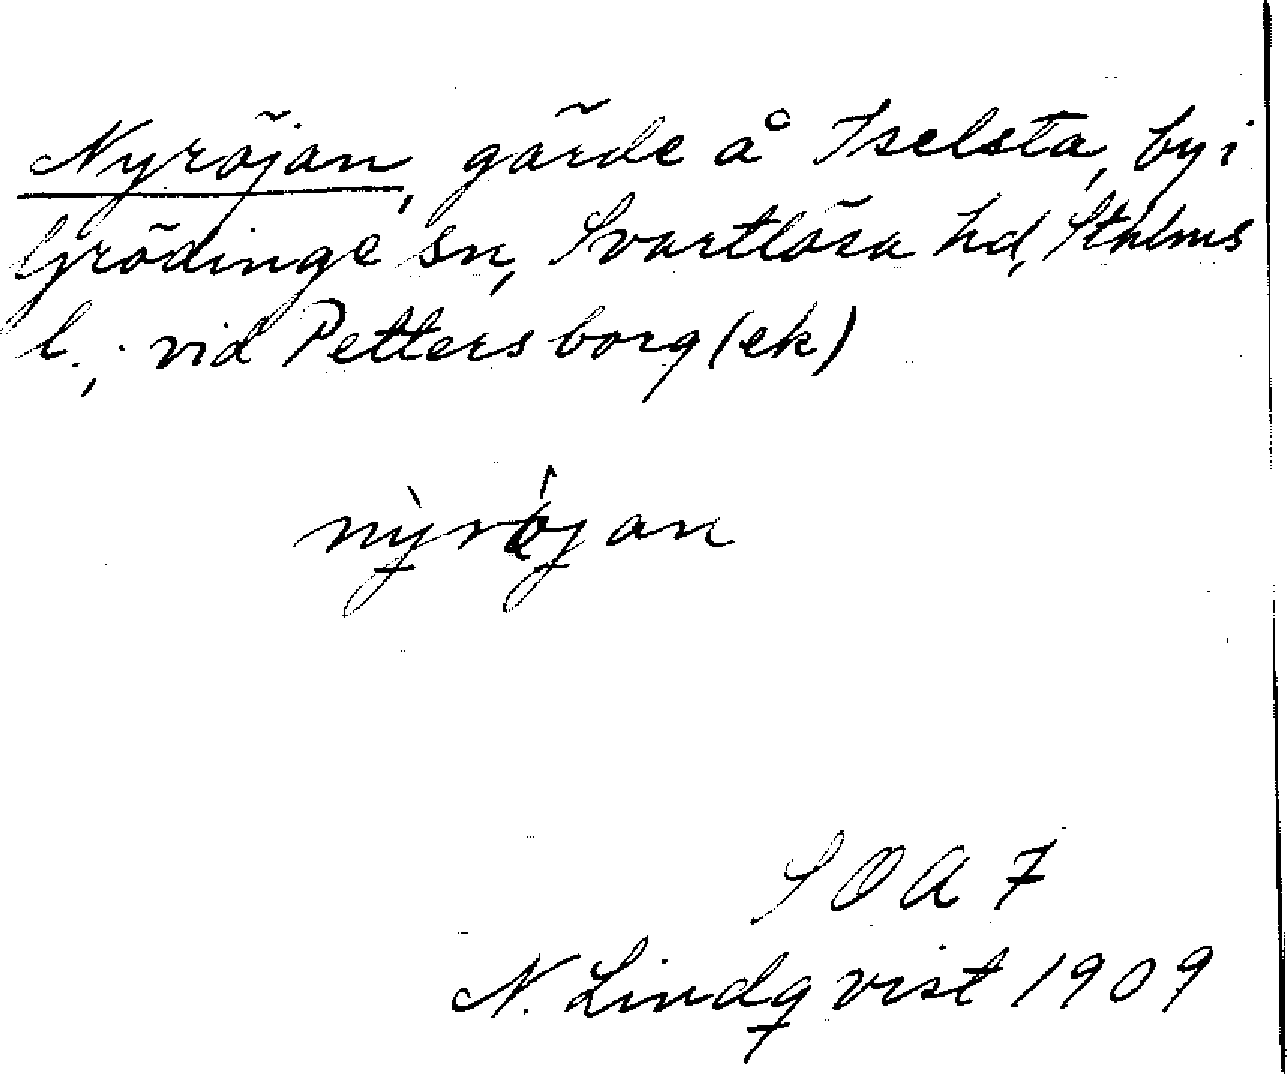 Nyröjan, gärde å Iselsta, by i
Grödinge sn, Svartlösa hd, Sthlms
l.; vid Pettersborg (ek)
SOA 7
N. Lindqvist 1909